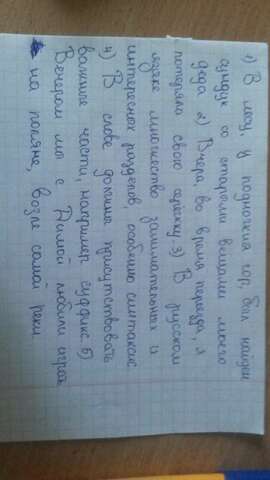 1) В лесу, у подножия гор, был найден
сундук со старыми вещами моего
деда 2) Вчера, во время переезда, я
потеряла свою серёжку 3) В русском
языке множество занимательных и
интересных разделов, особенно синтаксис
4) В слове должны присутствовать
важные части, например суффикс. 5)
Вечером мы с Димой любили играть
на поляне, возле самой реки